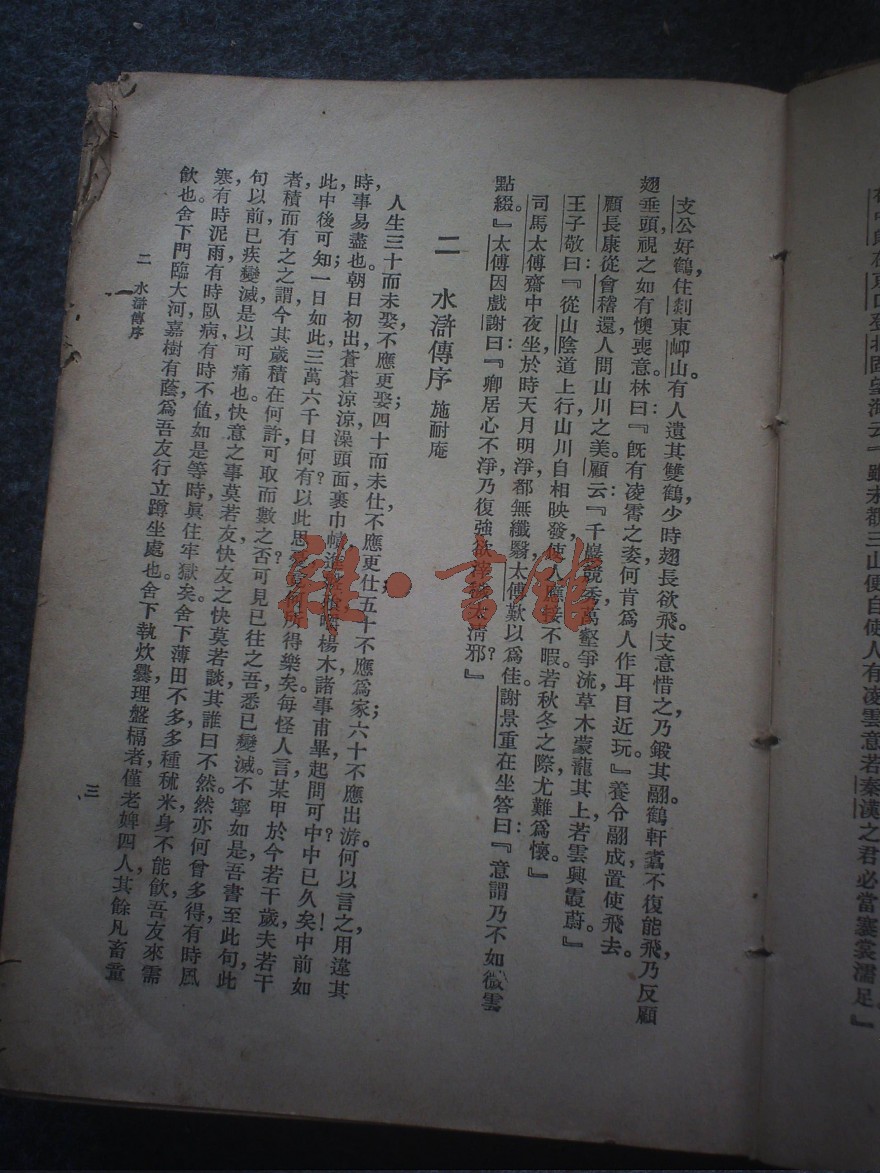 在東口登北固望海云『雖未覩三山便自使人有凌雲意若秦漢之君必當褰裳濡足。』
支公好鶴，住剡東岇山。有人遺其雙鶴，少時翅長欲飛。支意惜之，乃鎩其翮。鶴軒翥不復能飛，乃反顧
翅垂頭，視之如有懊喪意。林曰：『既有凌霄之姿，何肯爲人作耳目近玩。』養令翮成，置使飛去。
顧長康從會稽還，人問山川之美，顧云：『千巖競秀，萬壑爭流，草木蒙籠其上，若雲興霞蔚。』
王子敬曰：『從山陰道上行，山川自相映發，使人應接不暇。若秋冬之際，尤難爲懷。』
司馬太傅齋中夜坐，於時天月明淨，都無纖翳，太傅歎以爲佳。謝景重在坐，答曰：『意謂乃不如微雲
點綴。』太傅因戲謝曰：『卿居心不淨，乃復強欲滓穢太清邪？』
二 水滸傳序 施耐庵
人生三十而未娶，不應更娶；四十而未仕，不應更仕；五十不應爲家；六十不應出游。何以言之？用違其
時，事易盡也。朝日初出，蒼蒼涼涼，澡頭面，裹巾幘，進盤飧，嚼楊木。諸事甫畢，起問可中，中已久矣！中前如
此，中後可知。一日如此，三萬六千日何有！以此思憂，竟何所得樂矣。每怪人言某甲於今若干歲，夫若干
者，積而有之之謂，今其歲積在何許？可取而數之否？可見已往之吾，悉已變滅。不寧如是，吾書至此句，此
句以前已疾變滅，是以可痛也。快意之事莫若友，快友之快莫若談，其誰曰不然？然亦何曾多得。有時風
寒，有時泥雨，有時臥病，有時不值，如是等時，眞住牢獄矣。舍下薄田不多，多種秫米，身不能飲，吾友來需
飲也。舍下門臨大河，嘉樹有蔭，爲吾友行立蹲坐處也。舍下執炊爨，理盤槅者，僅老婢四人，其餘凡畜童
二 水滸傳序
三
雜·書館